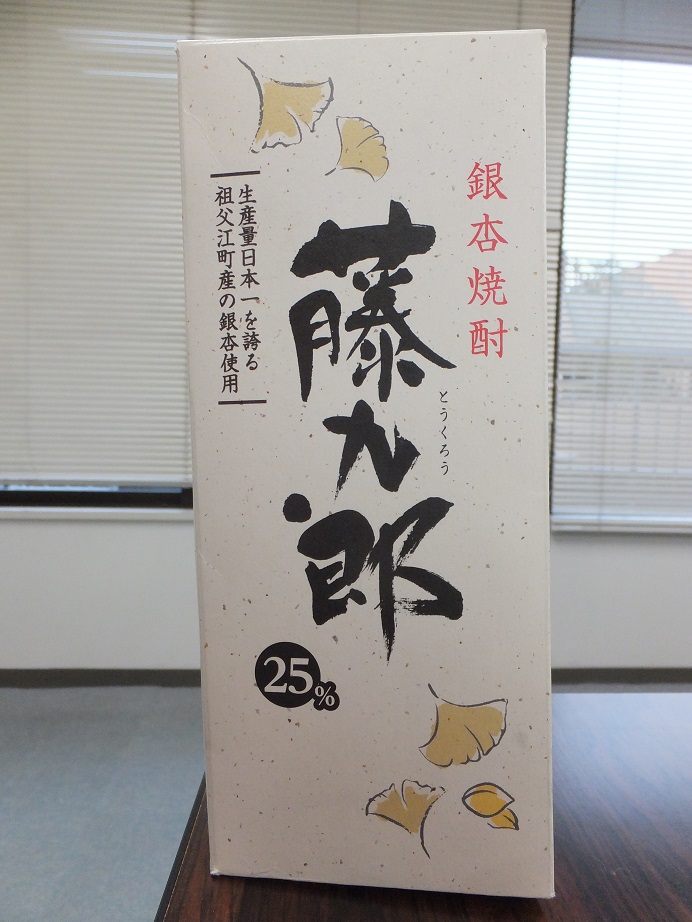 銀杏焼酎
藤九郎
とうくろう
生産量日本一を誇る
祖父江町産の銀杏使用
25%